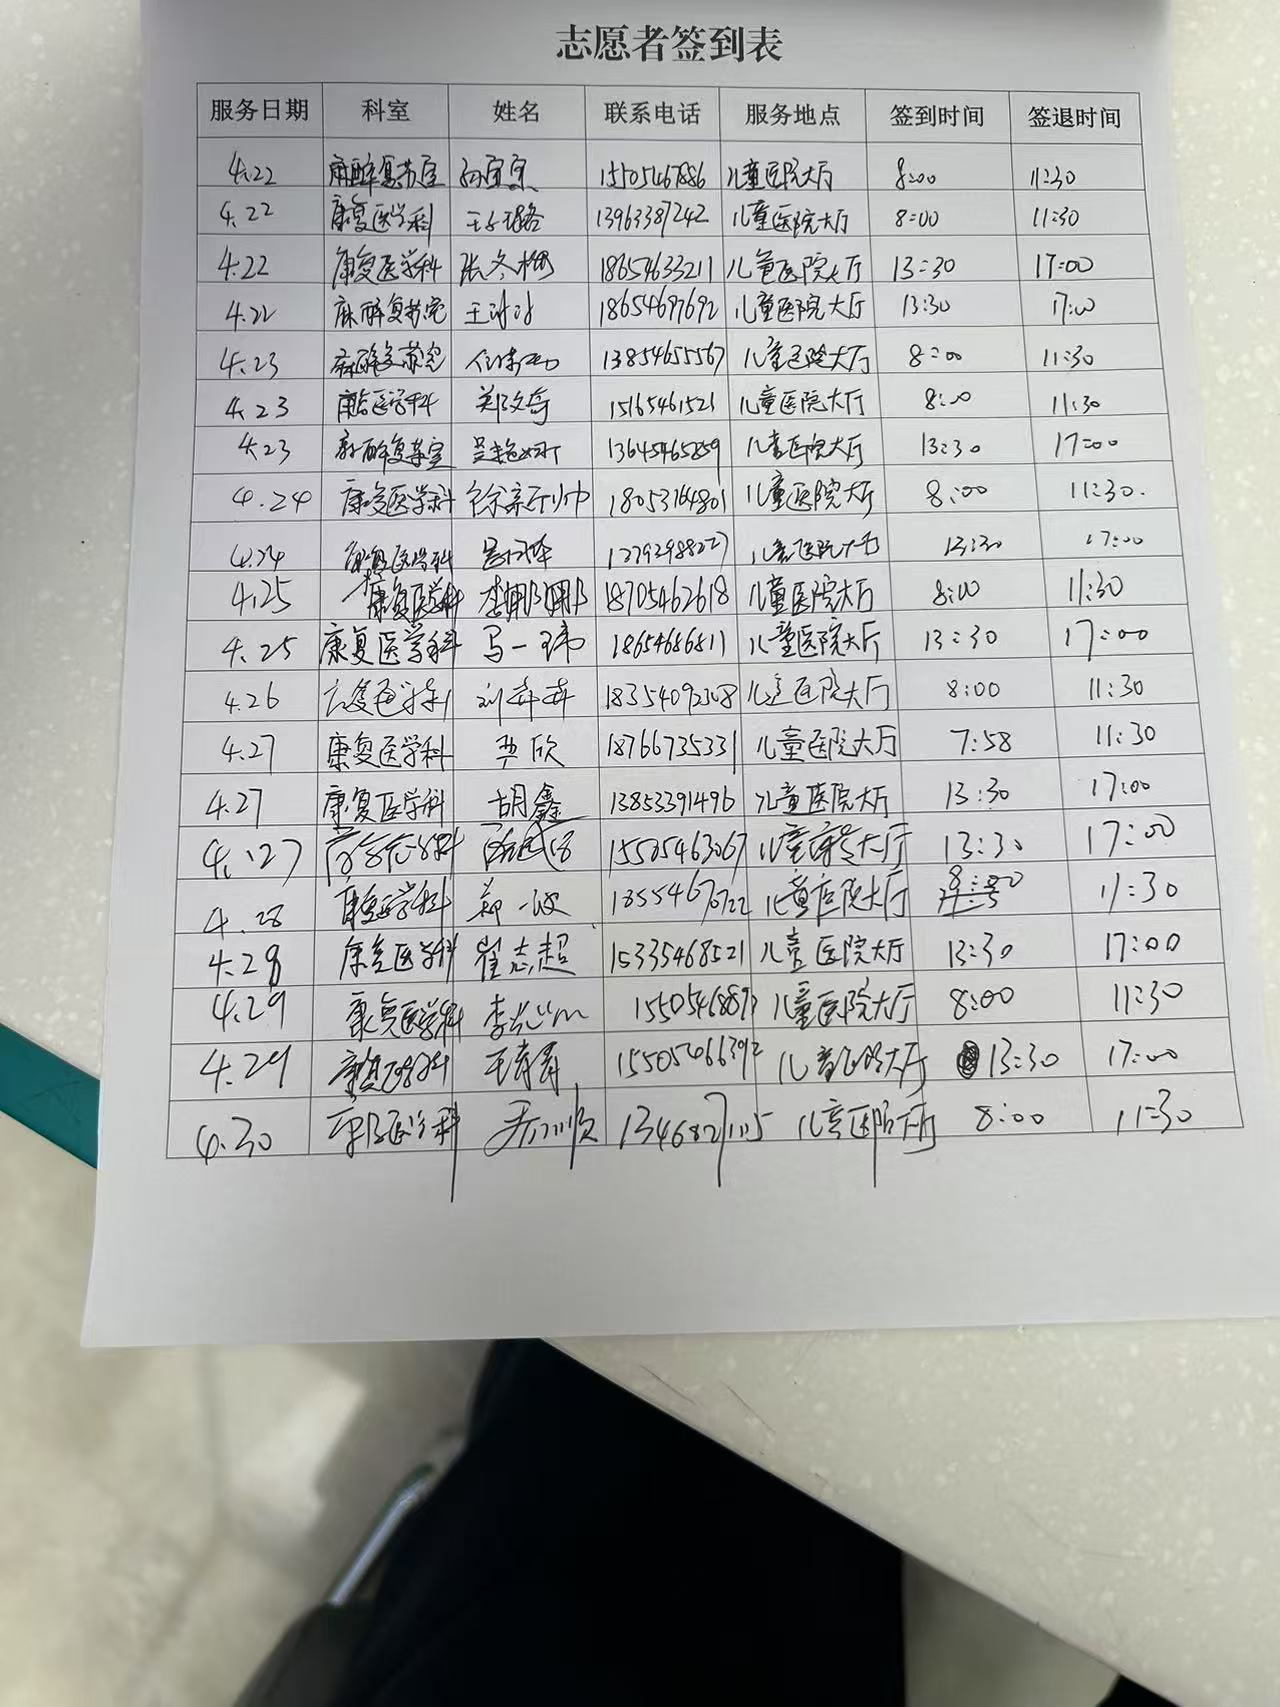 志愿者签到表
服务日期 科室 姓名 联系电话 服务地点 签到时间 签退时间
4.22 麻醉复苏室 15505467886 儿童医院大厅 8:00 11:30
4.22 康复医学科 13963387242 儿童医院大厅 8:00 11:30
4.22 康复医学科 张冬梅 18654633211 儿童医院大厅 13:30 17:00
4.22 麻醉复苏室 18654697692 儿童医院大厅 13:30 17:00
4.23 麻醉复苏室 13854655567 儿童医院大厅 8:00 11:30
4.23 康复医学科 郑文奇 15165461521 儿童医院大厅 8:00 11:30
4.23 麻醉复苏室 13645465859 儿童医院大厅 13:30 17:00
4.24 康复医学科 18053164801 儿童医院大厅 8:00 11:30.
4.24 康复医学科 儿童医院大厅 13:30 17:00
4.25 康复医学科 李娜娜 18705462618 儿童医院大厅 8:00 11:30
4.25 康复医学科 马一玮 18654686811 儿童医院大厅 13:30 17:00
4.26 康复医学科 18354092308 儿童医院大厅 8:00 11:30
4.27 康复医学科 18766735331 儿童医院大厅 7:58 11:30
4.27 康复医学科 胡鑫 13853391496 儿童医院大厅 13:30 17:00
4.27 15505463067 大厅 13:30 17:00
4.28 康复医学科 18554670722 儿童医院大厅 8:00 11:30
4.28 康复医学科 崔志超 15335468521 儿童医院大厅 13:30 17:00
4.29 康复医学科 儿童医院大厅 8:00 11:30
4.29 康复医学科 儿童医院大厅 13:30 17:00
4.30 康复医学科 儿童医院大厅 8:00 11:30